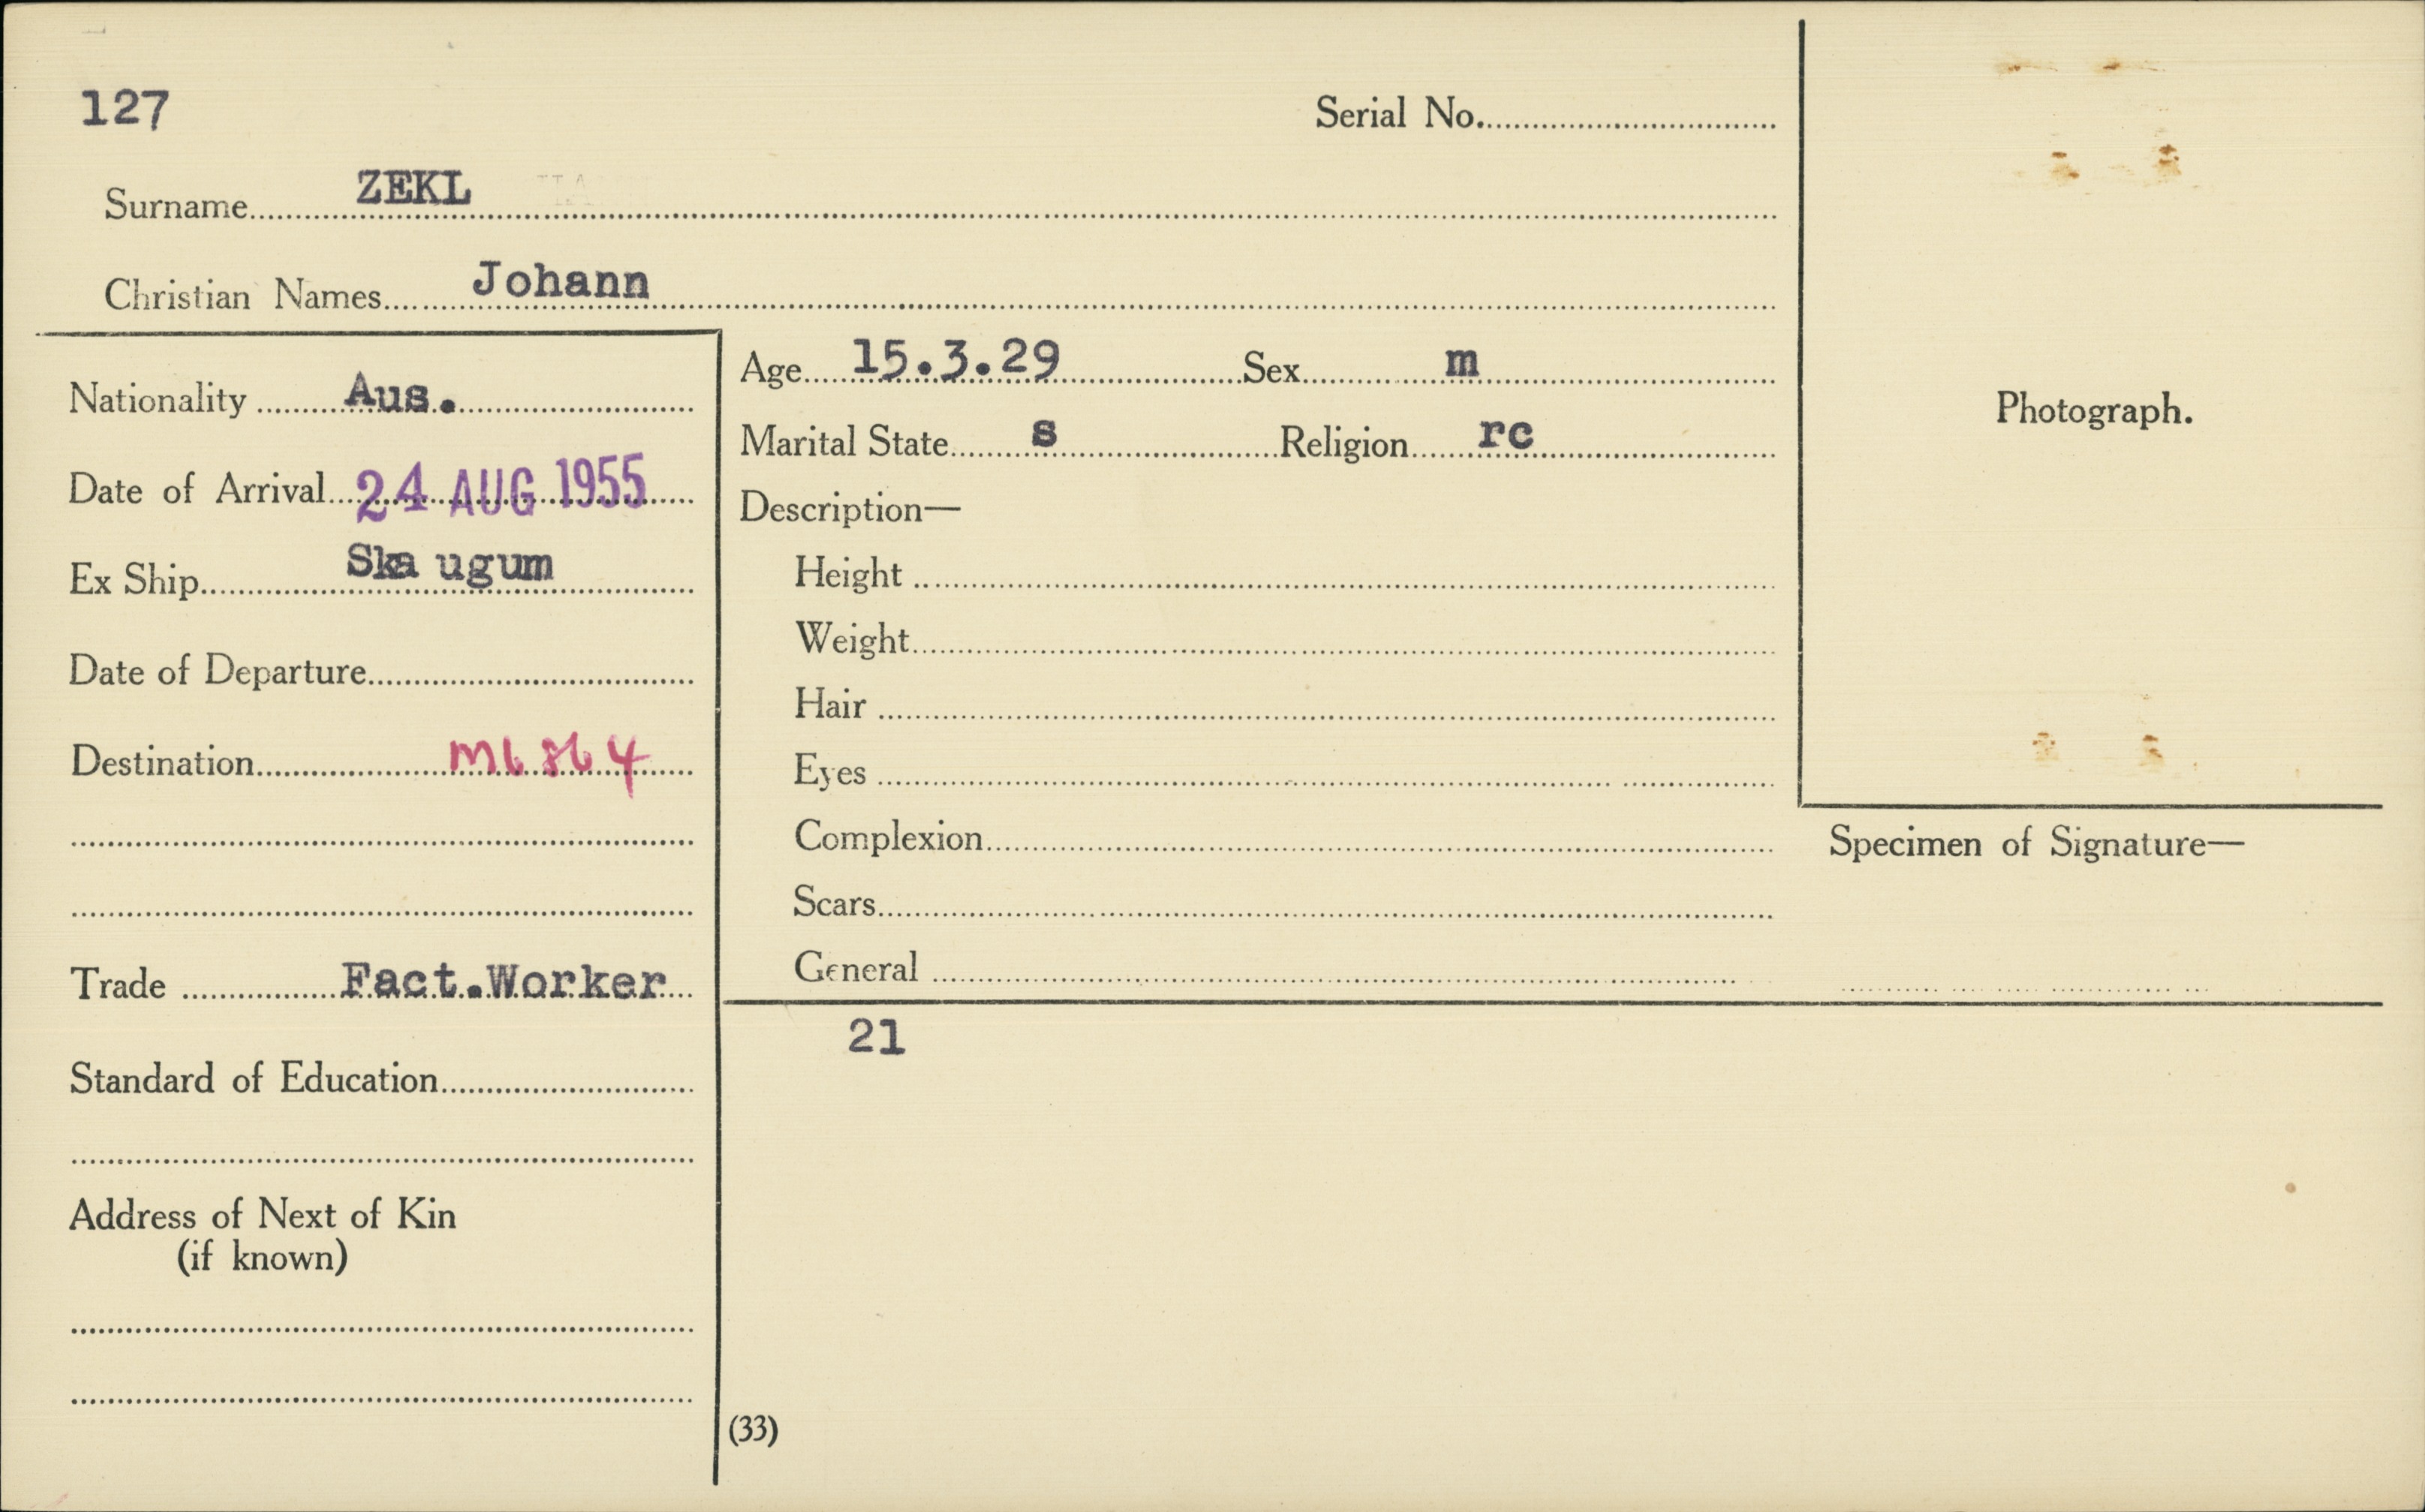 127
Serial No.
Surname ZEKL
Christian Names Johann
Nationality Aus.
Date of Arrival 24 AUG 1955
Ex Ship Ska ugum
Date of Departure
Destination M6864
Trade Fact.Worker
Standard of Education
Address of Next of Kin
(if known)
Age 15.3.29 Sex m
Marital State s Religion rc
Description—
Height
Weight
Hair
Eyes
Complexion
Scars
General
21
(33)
Photograph.
Specimen of Signature—